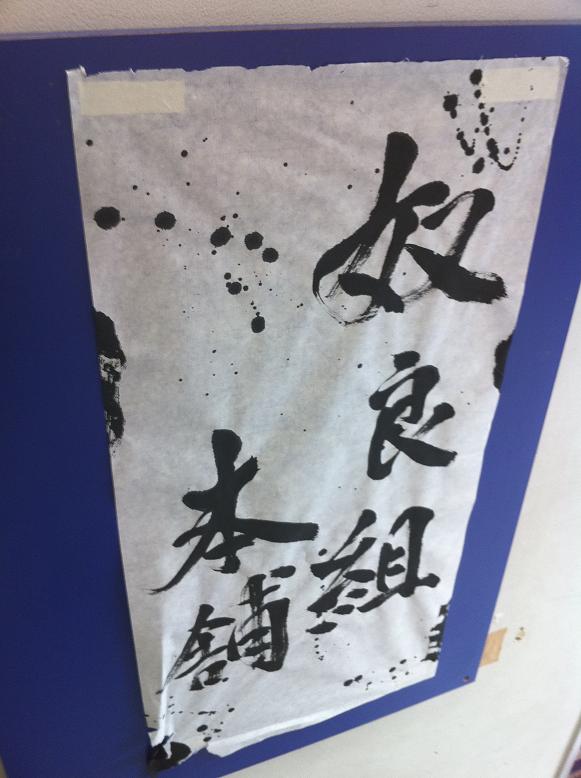 奴良組
本舗